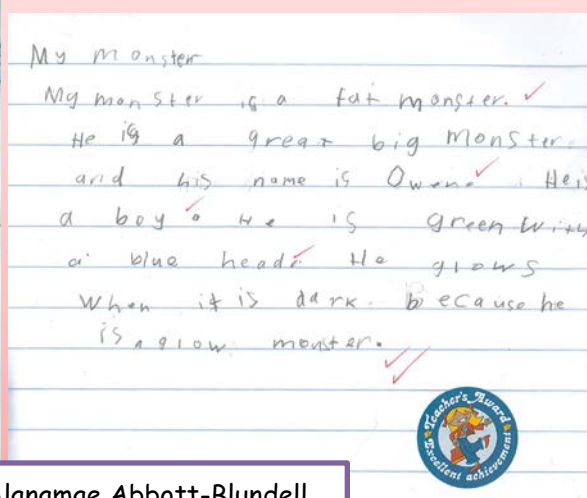 My Monster
My monster is a fat monster.
He is a great big monster
and his name is Owen. He is
a boy. He is green with
a blue head. He glows
when it is dark. because he
is a glow monster.
Teacher's Award
Excellent achievement
Alanamae Abbott-Blundell